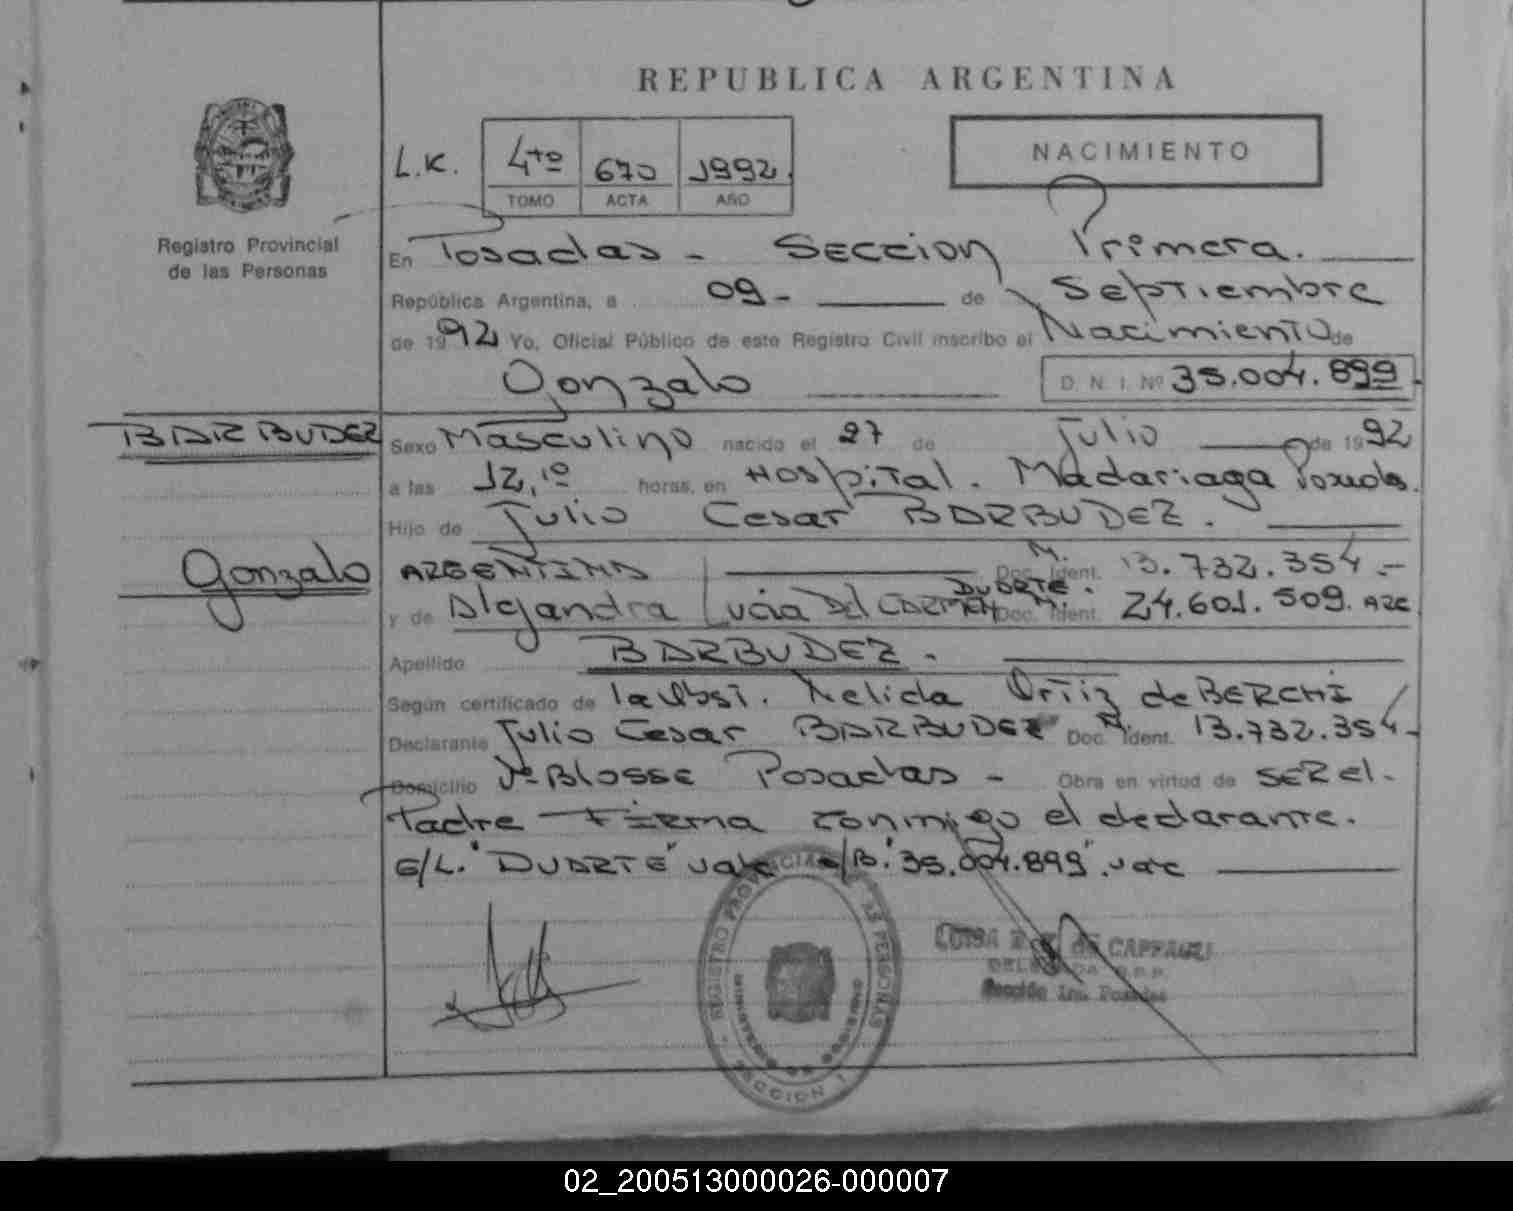 REPUBLICA ARGENTINA
NACIMIENTO
L.K. 4to 670 1992
TOMO ACTA AÑO
Registro Provincial
de las Personas
En Posadas - Seccion Primera.
República Argentina, a 09 - de Septiembre
de 1992 Yo, Oficial Público de este Registro Civil inscribo el Nacimiento de
Gonzalo D. N. I. Nº 35.004.899
BARBUDEZ
Sexo Masculino nacido el 27 de Julio de 1992
a las 12,10 horas, en Hospital. Madariaga Posadas.
Hijo de Julio Cesar BARBUDEZ.
Gonzalo
ARGENTINA M. Doc. Ident. 13.732.354.-
DUARTE.
y de Alejandra Lucia Del CARMEN M. Doc. Ident. 24.601.509. ARG
Apellido BARBUDEZ.
Según certificado de la Obst. Nelida Ortiz de BERCHI
Declarante Julio Cesar BARBUDEZ M. Doc. Ident. 13.732.354.-
Domicilio Vª Blosse Posadas - Obra en virtud de SER el.
Padre Firma conmigo el declarante.
E/L. "DUARTE" vale s/B. "35.004.899". vale
REGISTRO PROVINCIAL DE LAS PERSONAS
MINISTERIO DE GOBIERNO
SECCION 1
LUISA DE CAPPAGLI
DELEGADA R.P.P.
Sección 1ra. Posadas
02_200513000026-000007